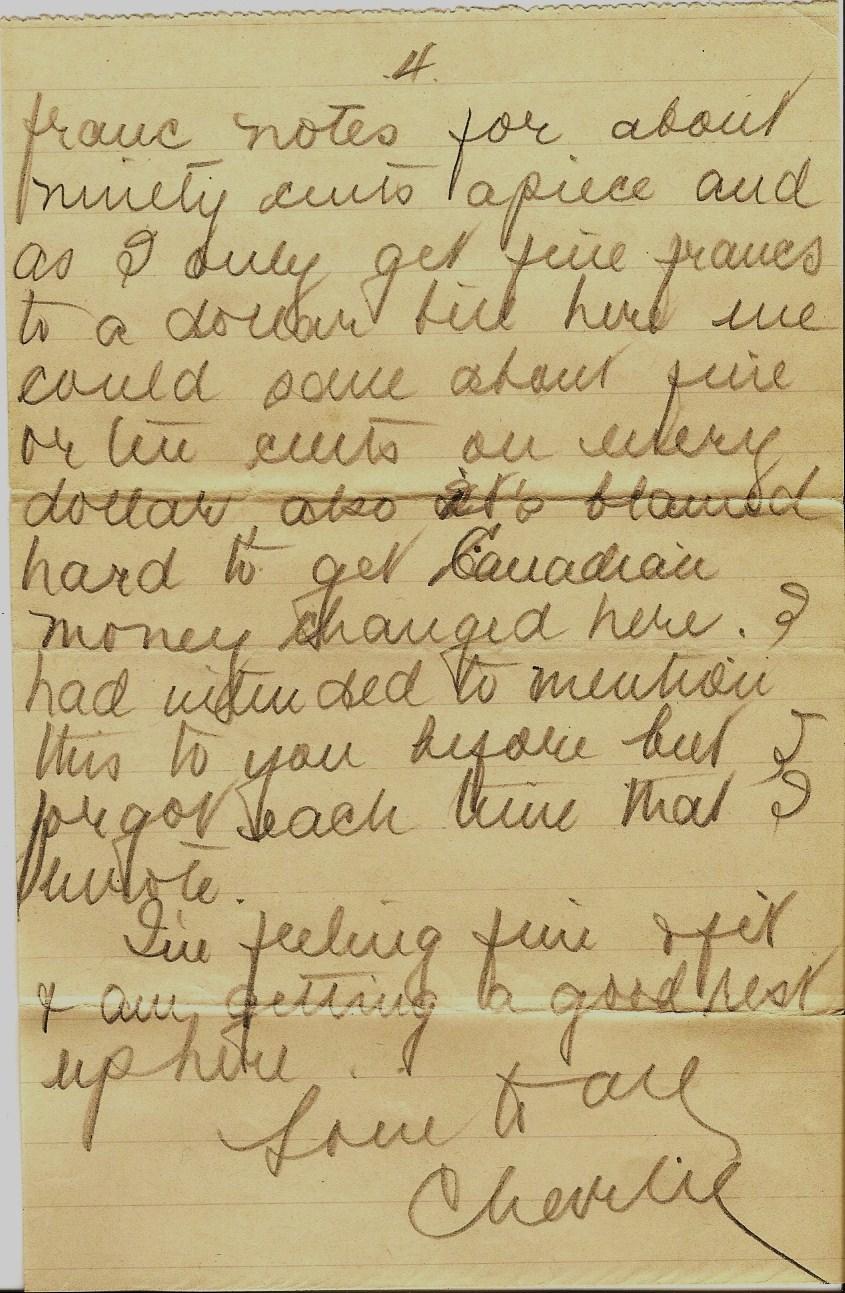 4.
franc notes for about
ninety cents apiece and
as I only get five francs
to a dollar bill here we
could save about five
or ten cents on every
dollar also it's blamed
hard to get Canadian
money changed here. I
had intended to mention
this to you before but I
forgot each time that I
wrote.
I'm feeling fine & fit
& am getting a good rest
up here...
Love to all
Charlie